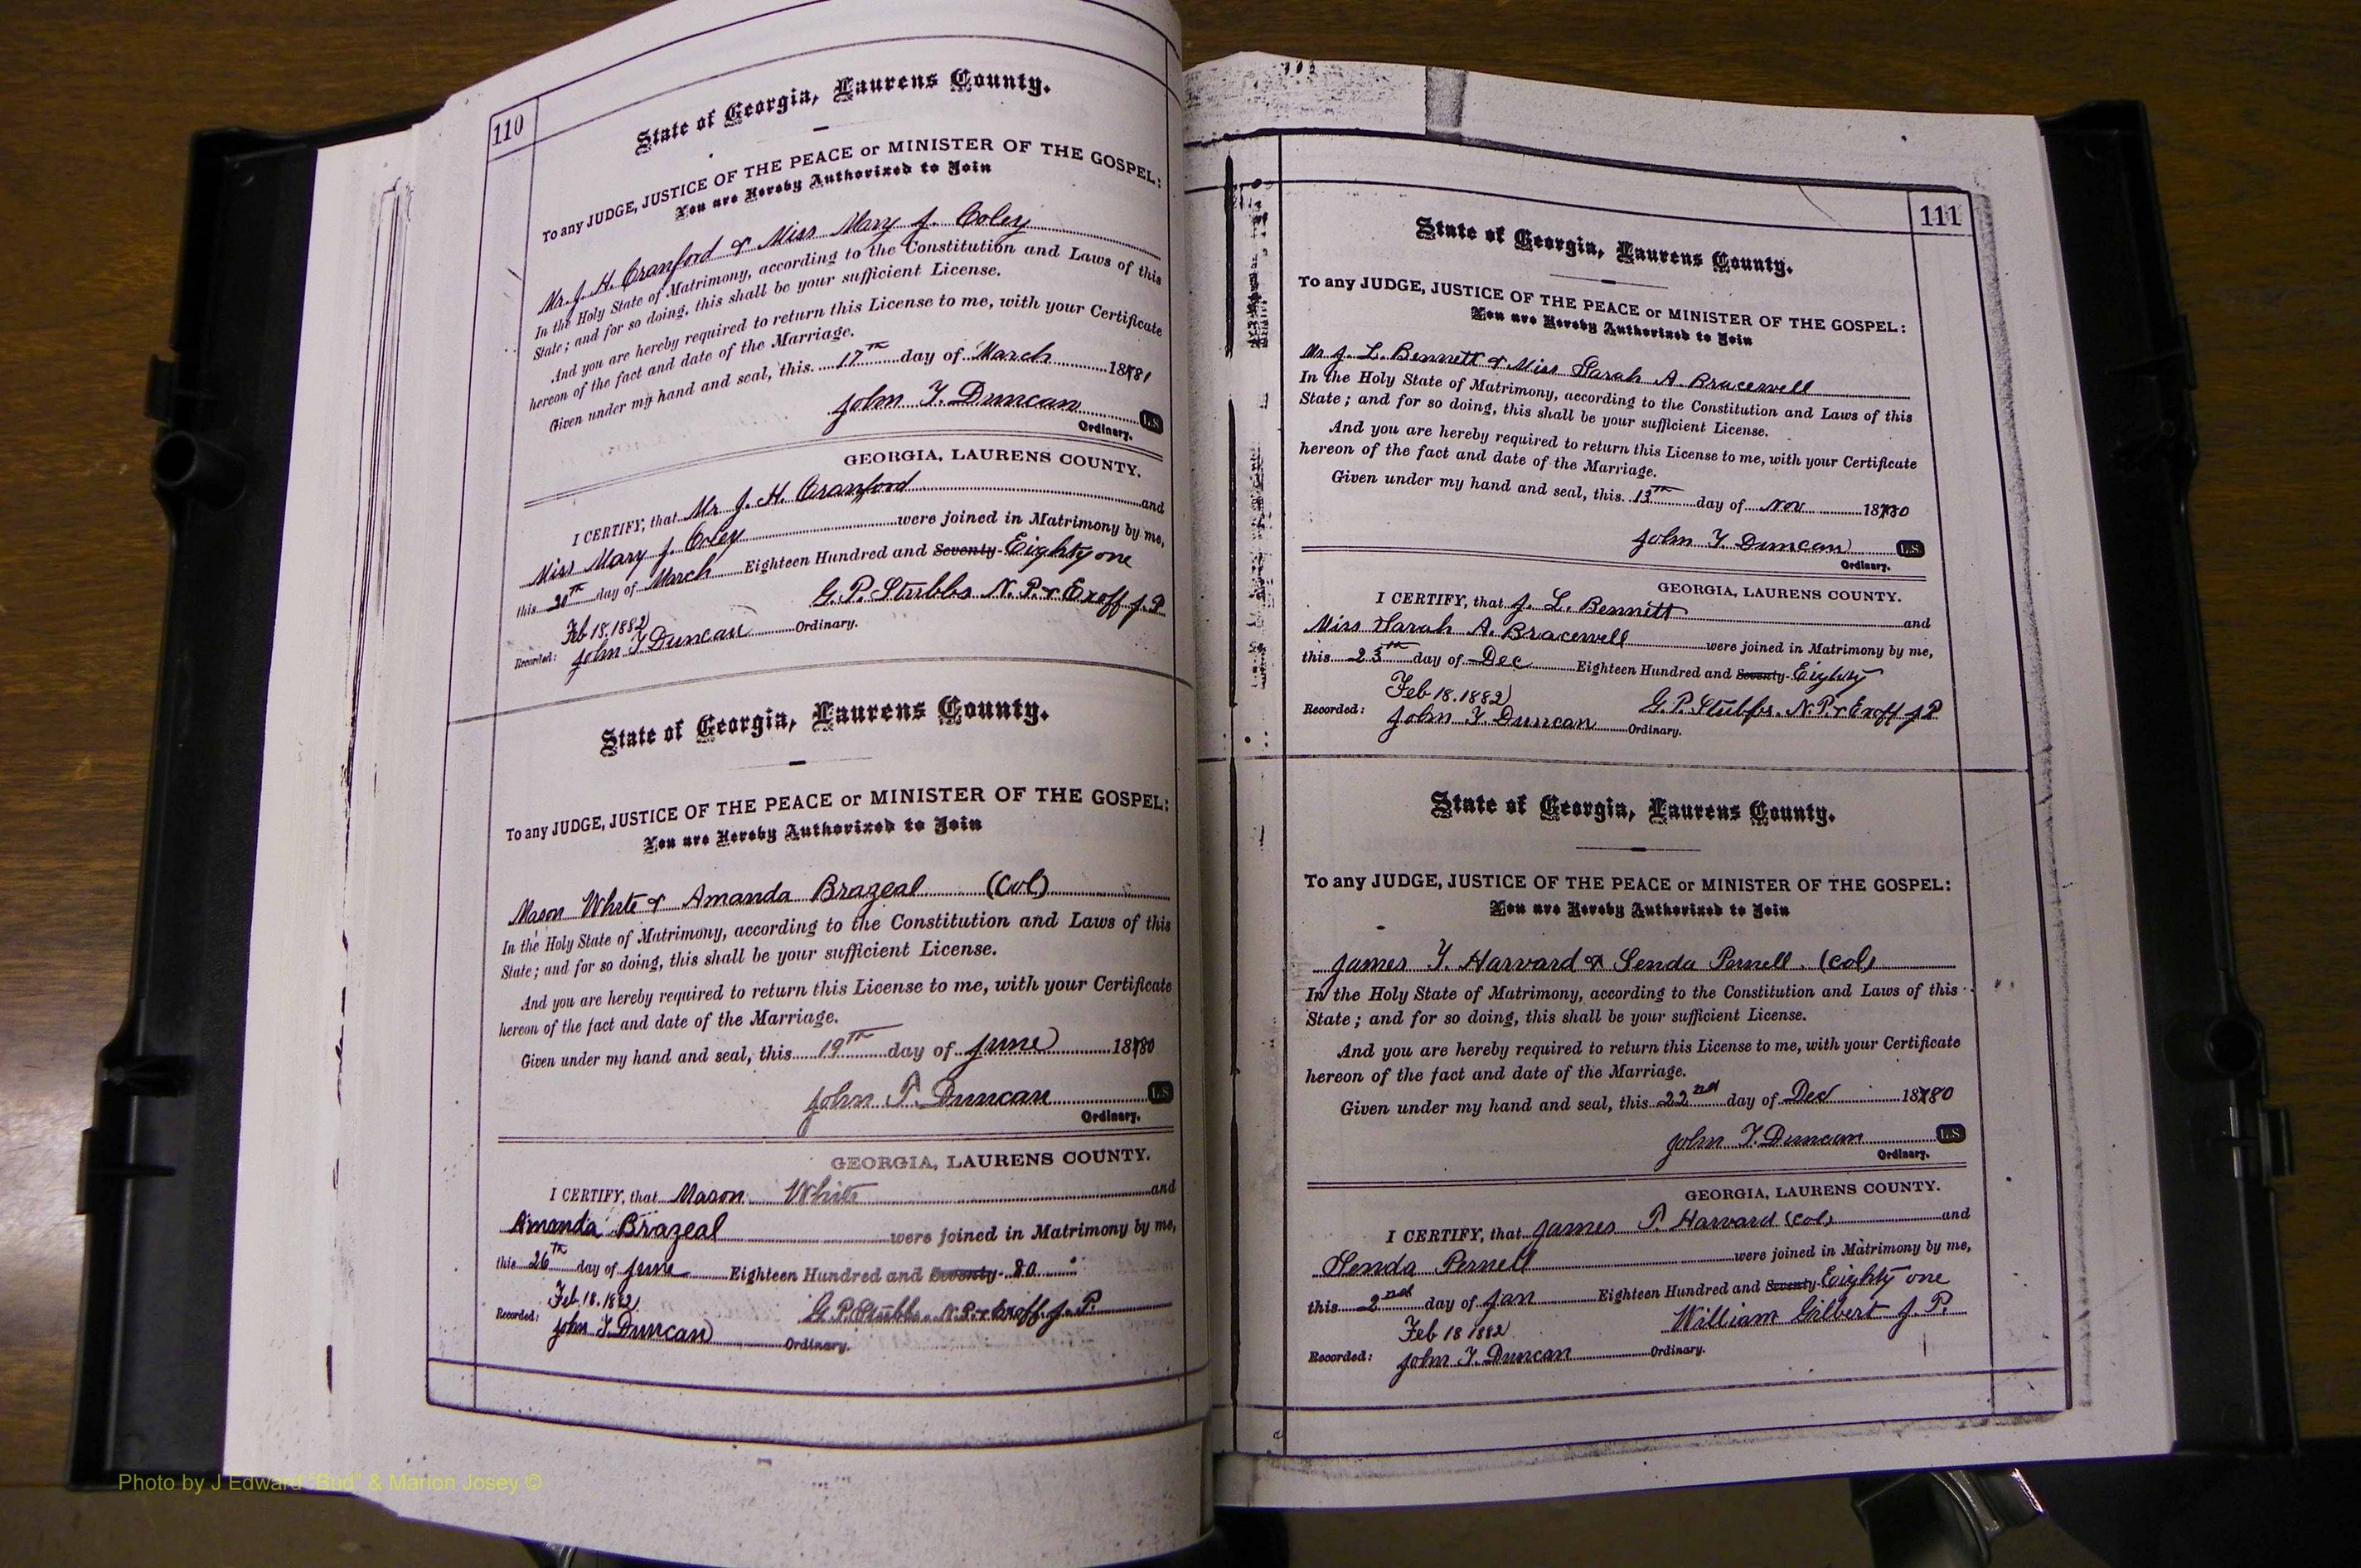 110
State of Georgia, Laurens County.
To any JUDGE, JUSTICE OF THE PEACE or MINISTER OF THE GOSPEL:
You are Hereby Authorized to Join
Mr. J. H. Cranford & Miss Mary J. Coley
In the Holy State of Matrimony, according to the Constitution and Laws of this
State; and for so doing, this shall be your sufficient License.
And you are hereby required to return this License to me, with your Certificate
hereon of the fact and date of the Marriage.
Given under my hand and seal, this 17th day of March 1881
John T. Duncan L.S.
Ordinary.
GEORGIA, LAURENS COUNTY.
I CERTIFY, that Mr J. H. Cranford and
Miss Mary J. Coley were joined in Matrimony by me,
this 20th day of March Eighteen Hundred and Seventy-Eighty one
G. P. Stubbs N. P. & Exoff J. P
Feb 18. 1882
Recorded: John T Duncan Ordinary.
State of Georgia, Laurens County.
To any JUDGE, JUSTICE OF THE PEACE or MINISTER OF THE GOSPEL:
You are Hereby Authorized to Join
Mason White & Amanda Brazeal (Col)
In the Holy State of Matrimony, according to the Constitution and Laws of this
State; and for so doing, this shall be your sufficient License.
And you are hereby required to return this License to me, with your Certificate
hereon of the fact and date of the Marriage.
Given under my hand and seal, this 19th day of June 1880
John T. Duncan L.S.
Ordinary.
GEORGIA, LAURENS COUNTY.
I CERTIFY, that Mason White and
Amanda Brazeal were joined in Matrimony by me,
this 26th day of June Eighteen Hundred and Seventy-80
G. P. Stubbs. N. P. & Exoff. J. P.
Feb. 18. 1882
Recorded: John T. Duncan Ordinary.
111
State of Georgia, Laurens County.
To any JUDGE, JUSTICE OF THE PEACE or MINISTER OF THE GOSPEL:
You are Hereby Authorized to Join
Mr J. L. Bennett & Miss Sarah A. Bracewell
In the Holy State of Matrimony, according to the Constitution and Laws of this
State; and for so doing, this shall be your sufficient License.
And you are hereby required to return this License to me, with your Certificate
hereon of the fact and date of the Marriage.
Given under my hand and seal, this 13th day of Nov 1880
John T. Duncan L.S.
Ordinary.
GEORGIA, LAURENS COUNTY.
I CERTIFY, that J. L. Bennett and
Miss Sarah A. Bracewell were joined in Matrimony by me,
this 23th day of Dec Eighteen Hundred and Seventy-Eighty
Feb 18. 1882
G. P. Stubbs. N. P. & Exoff J P
Recorded: John T. Duncan Ordinary.
State of Georgia, Laurens County.
To any JUDGE, JUSTICE OF THE PEACE or MINISTER OF THE GOSPEL:
You are Hereby Authorized to Join
James T. Harvard & Senda Pernell. (Col)
In the Holy State of Matrimony, according to the Constitution and Laws of this
State; and for so doing, this shall be your sufficient License.
And you are hereby required to return this License to me, with your Certificate
hereon of the fact and date of the Marriage.
Given under my hand and seal, this 22nd day of Dec 1880
John T. Duncan L.S.
Ordinary.
GEORGIA, LAURENS COUNTY.
I CERTIFY, that James T. Harvard (Col) and
Senda Pernell were joined in Matrimony by me,
this 2nd day of Jan Eighteen Hundred and Seventy-Eighty one
William Gilbert J. P.
Feb 18 1882
Recorded: John T. Duncan Ordinary.
Photo by J Edward "Bud" & Marion Josey ©